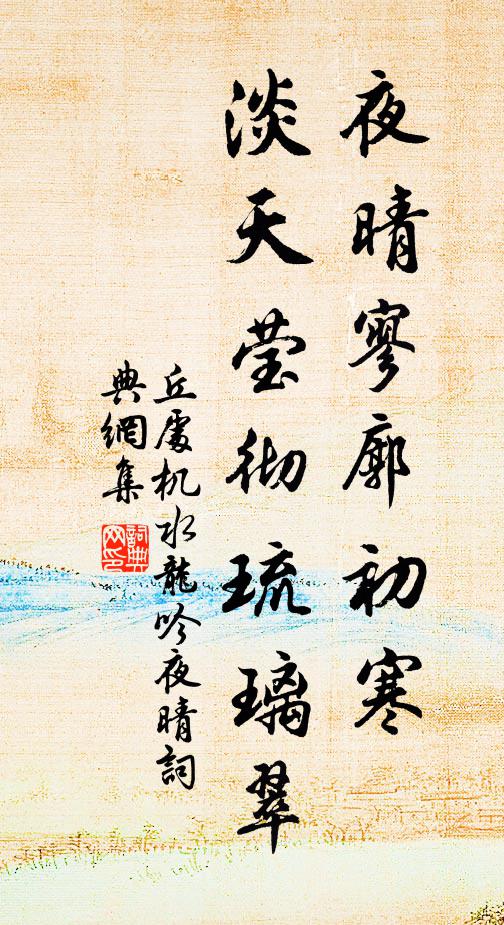 夜晴寥廓初寒
淡天莹彻琉璃翠
丘處机水龍吟夜晴詞
典網集
詞典
网印